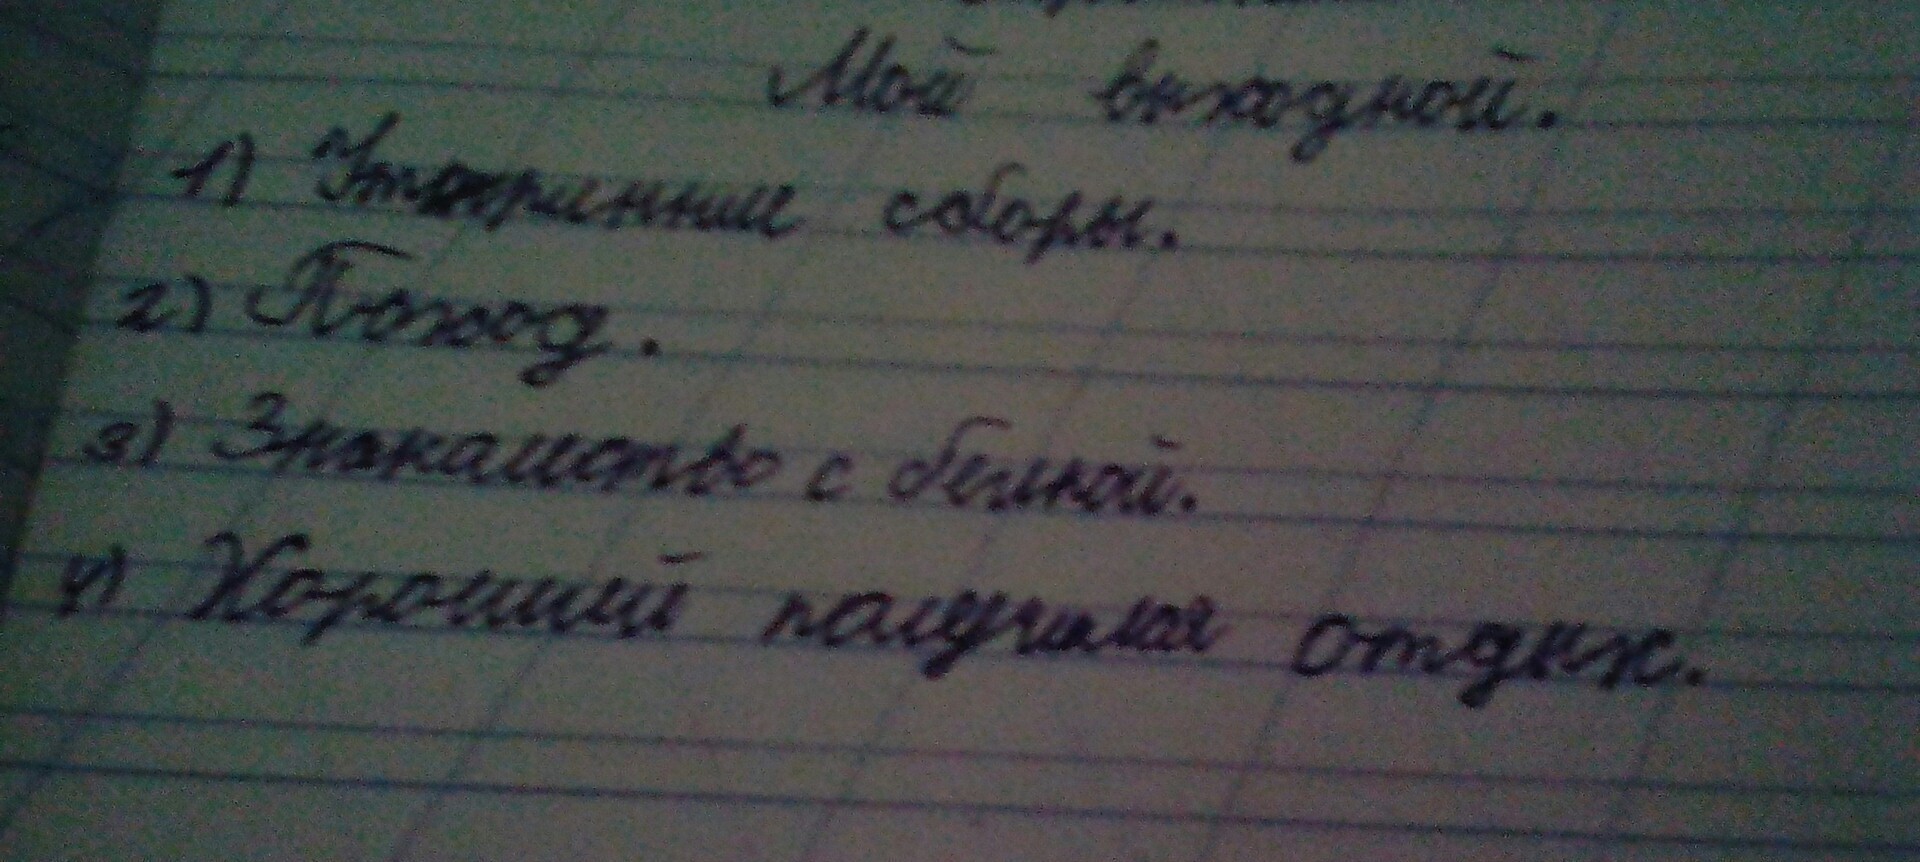 Мой выходной.
1) Утреннии сборы.
2) Поход.
3) Знакамство с белкой.
4) Хороший получился отдых.